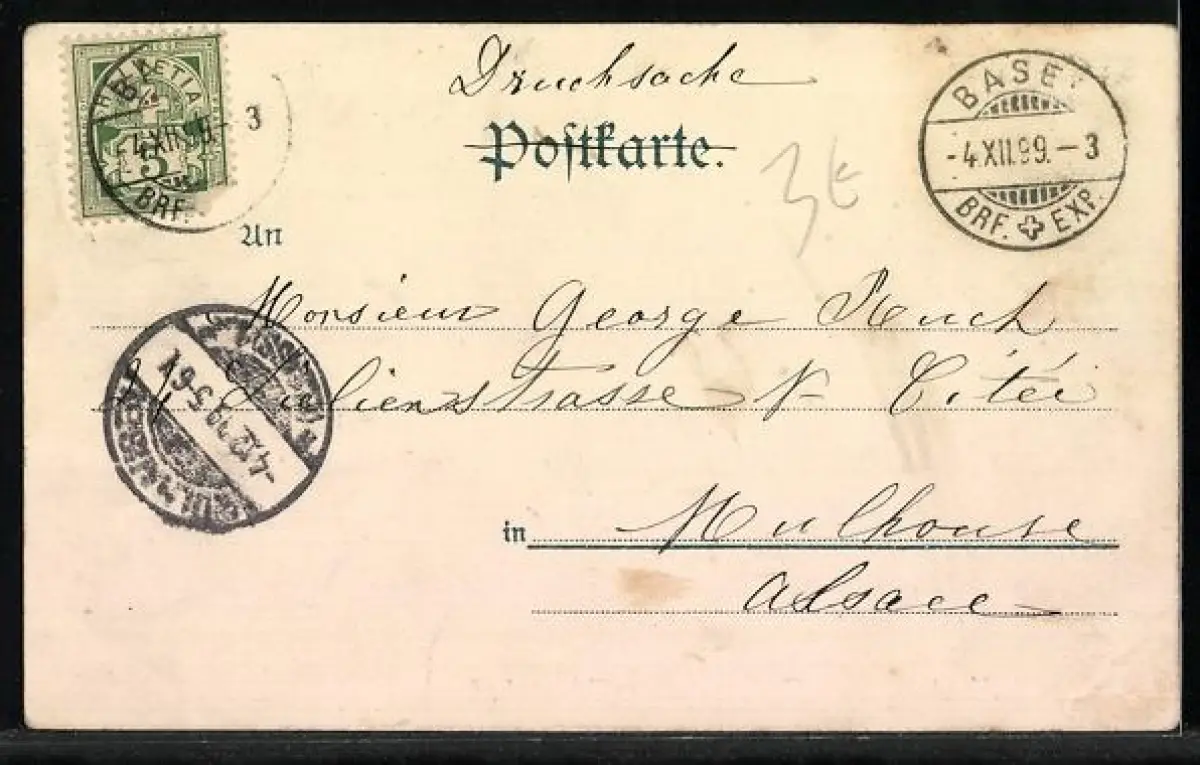 HELVETIA
5
BASEL
-4.XII.99.-3
BRF. EXP.
Drucksache
Postkarte.
BASEL
-4.XII.99.-3
BRF. EXP.
3€
An
Monsieur George Ruch
Julienstrasse Citéi
in Mulhouse
Alsace